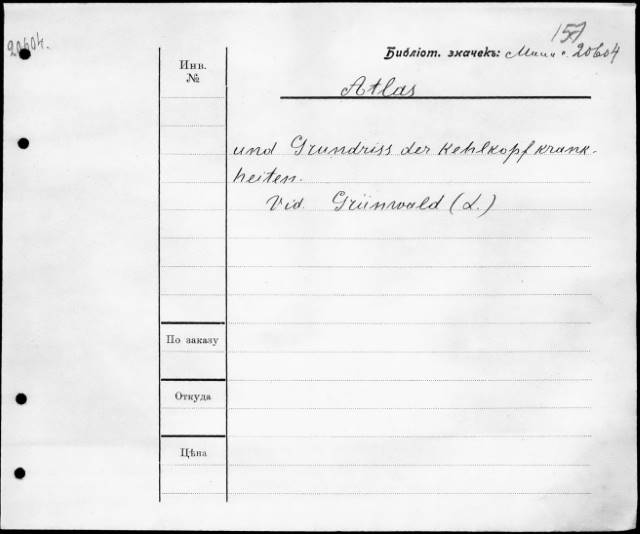 20604.
157
Библіот. значекъ: 20604
Инв.
№
Atlas
und Grundriss der Kehlkopfkrank-
heiten.
Vid. Grünwald (L.)
По заказу
Откуда
Цѣна